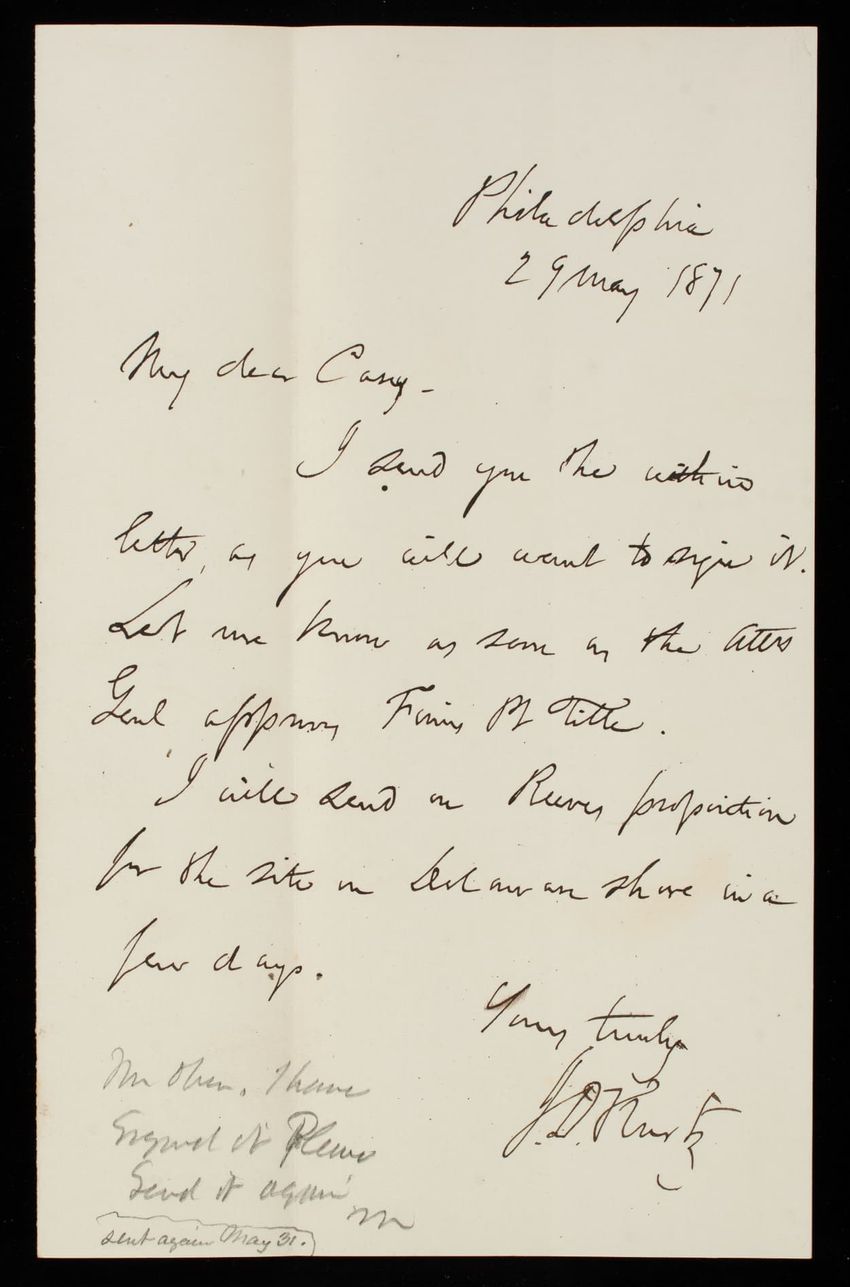 Philadelphia
29 May 1871
My dear Casey -
I send you the within
letter, as you will want to sign it.
Let me know as soon as the Atty
Genl approves Finns Pt Title.
I will send on Reeves proposition
for the site on Delaware shore in a
few days.
Yours truly
J. D. Kurtz
Mr I have
Signed it Please
Send it again
sent again May 31.